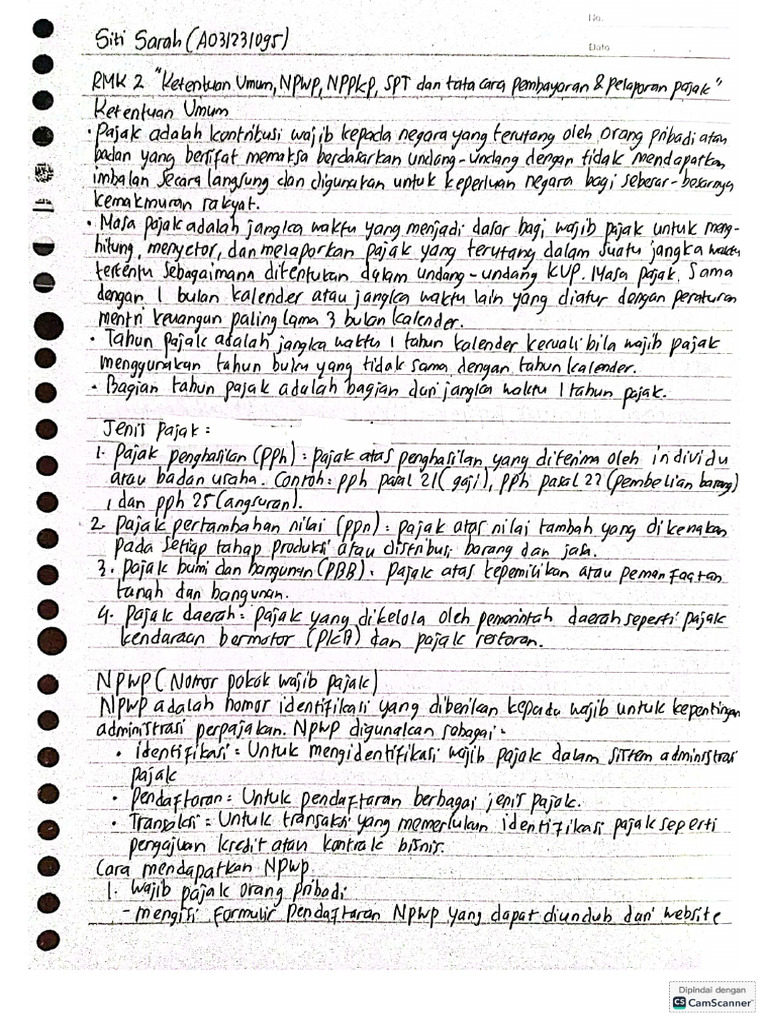 No.
Date
Siti Sarah (A031231095)
RMK 2 "Ketentuan Umum, NPWP, NPPKP, SPT dan tata cara pembayaran & pelaporan pajak"
Ketentuan Umum
• Pajak adalah kontribusi wajib kepada negara yang terutang oleh orang pribadi atau
badan yang bersifat memaksa berdasarkan undang-undang dengan tidak mendapatkan
imbalan secara langsung dan digunakan untuk keperluan negara bagi sebesar-besarnya
kemakmuran rakyat.
• Masa pajak adalah jangka waktu yang menjadi dasar bagi wajib pajak untuk meng-
hitung, menyetor, dan melaporkan pajak yang terutang dalam suatu jangka waktu
tertentu sebagaimana ditentukan dalam undang-undang KUP. Masa pajak sama
dengan 1 bulan kalender atau jangka waktu lain yang diatur dengan peraturan
mentri keuangan paling lama 3 bulan kalender.
• Tahun pajak adalah jangka waktu 1 tahun kalender kecuali bila wajib pajak
menggunakan tahun buku yang tidak sama dengan tahun kalender.
• Bagian tahun pajak adalah bagian dari jangka waktu 1 tahun pajak.
Jenis Pajak :
1. Pajak penghasilan (PPh) : pajak atas penghasilan yang diterima oleh individu
atau badan usaha. Contoh : pph pasal 21 (gaji), pph pasal 22 (pembelian barang)
, dan pph 25 (angsuran).
2. Pajak pertambahan nilai (ppn) : pajak atas nilai tambah yang dikenakan
pada setiap tahap produksi atau distribusi barang dan jasa.
3. Pajak bumi dan bangunan (PBB) : pajak atas kepemilikan atau pemanfaatan
tanah dan bangunan.
4. Pajak daerah : pajak yang dikelola oleh pemerintah daerah seperti pajak
kendaraan bermotor (PKB) dan pajak restoran.
NPWP (Nomor pokok wajib pajak)
NPWP adalah nomor identifikasi yang diberikan kepada wajib untuk kepentingan
administrasi perpajakan. NPWP digunakan sebagai :
• identifikasi : Untuk mengidentifikasi wajib pajak dalam sistem administrasi
pajak
• Pendaftaran : Untuk pendaftaran berbagai jenis pajak.
• Transaksi : Untuk transaksi yang memerlukan identifikasi pajak seperti
pengajuan kredit atau kontrak bisnis.
Cara mendapatkan NPWP
1. Wajib pajak orang pribadi
- mengisi formulir pendaftaran NPWP yang dapat diunduh dari website
Dipindai dengan
CS CamScanner